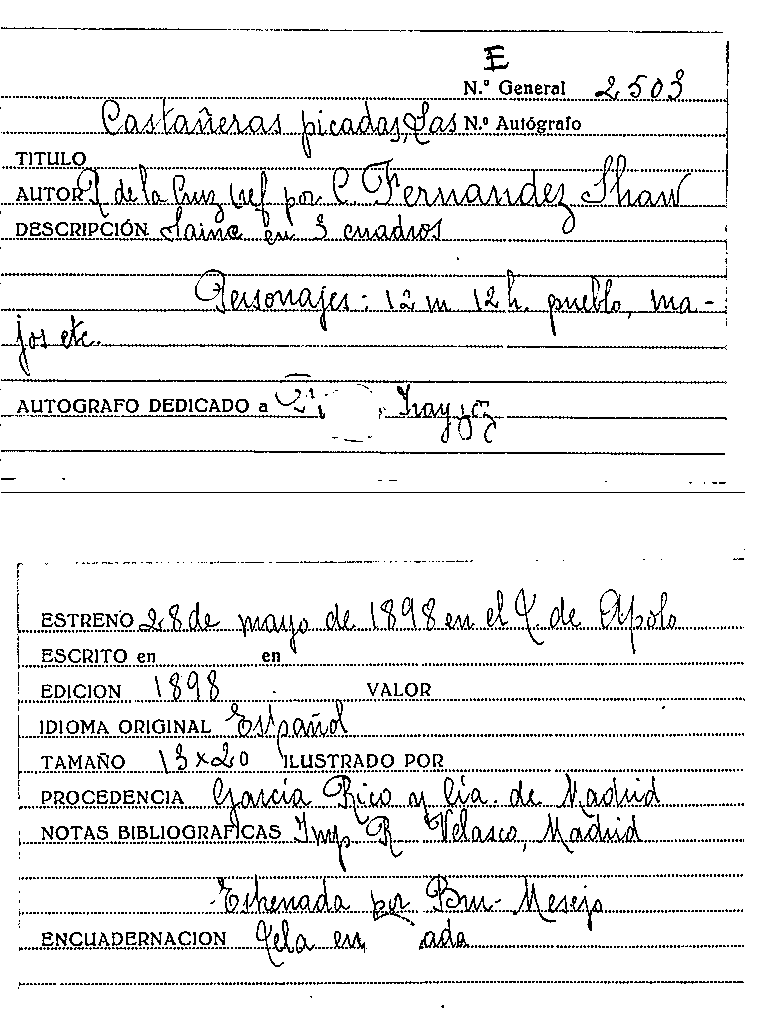 E
N.º General 2503
Castañeras picadas, Las N.º Autógrafo
TITULO
AUTOR R de la Cruz ref por C. Fernandez Shaw
DESCRIPCIÓN Saine en 3 cuadros
Personajes: 12 m 12 h. pueblo, ma-
jos etc.
AUTOGRAFO DEDICADO a Irayzoz
ESTRENO 28 de mayo de 1898 en el T. de Apolo
ESCRITO en en
EDICION 1898 VALOR
IDIOMA ORIGINAL Español
TAMAÑO 13x20 ILUSTRADO POR
PROCEDENCIA García Rico y Cía. de Madrid
NOTAS BIBLIOGRAFICAS Imp R Velasco, Madrid
Estrenada por Bru - Mesejo
ENCUADERNACION Tela en ada